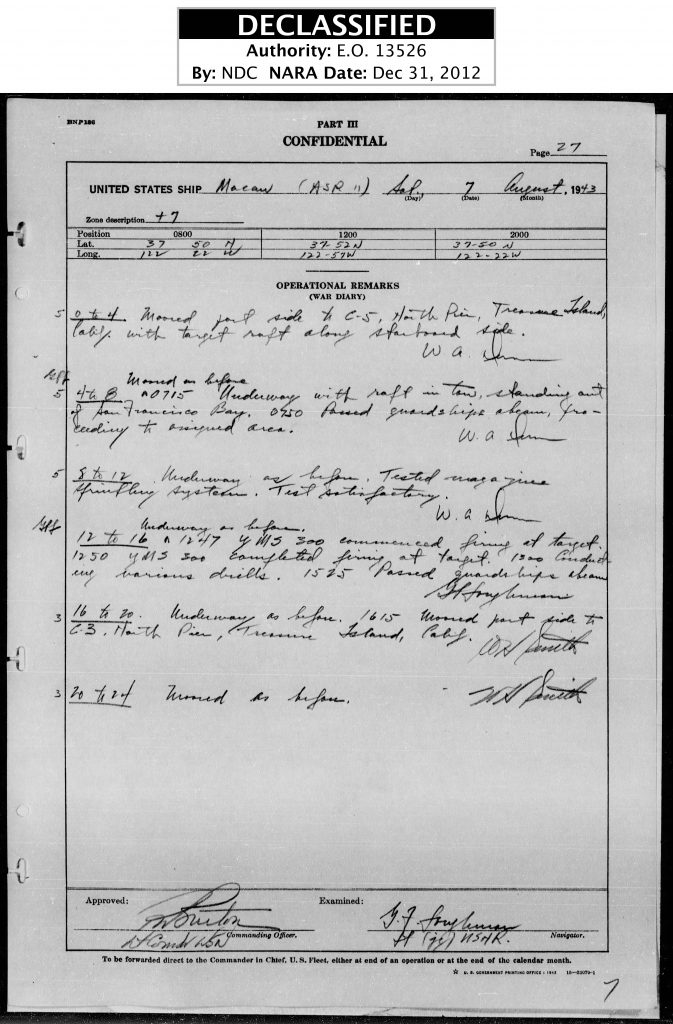 DECLASSIFIED
Authority: E.O. 13526
By: NDC NARA Date: Dec 31, 2012
BNP186
PART III
CONFIDENTIAL
Page 27
UNITED STATES SHIP Macaw (ASR 11) Sat, 7 August, 1943
(Day) (Date) (Month)
Zone description +7
Position 0800 1200 2000
Lat. 37 50 N 37-52N 37-50 N
Long. 122 22 W 122-57W 122-22W
OPERATIONAL REMARKS
(WAR DIARY)
5 0 to 4 Moored port side to C-5, North Pier, Treasure Island,
Calif. with target raft along starboard side.
W. A.
Moored as before
5 4 to 8 ^ 0715 Underway with raft in tow, standing out
of San Francisco Bay. 0750 Passed guardships abeam, pro-
ceeding to assigned area.
W. A.
5 8 to 12 Underway as before. Tested magazine
sprinkling system. Test satisfactory.
W. A.
Underway as before.
12 to 16 ^ 1247 YMS 300 commenced firing at target.
1250 YMS 300 completed firing at target. 1300 Conduct-
ing various drills. 1525 Passed guardships abeam
3 16 to 20. Underway as before. 1615 Moored port side to
C-3, North Pier, Treasure Island, Calif.
W H Smith
3 20 to 24 Moored as before.
W H Smith
Approved: Examined:
G. F.
Lt Comdr USN Commanding Officer. Lt (jg) USNR. Navigator.
To be forwarded direct to the Commander in Chief, U. S. Fleet, either at end of an operation or at the end of the calendar month.
☆ U. S. GOVERNMENT PRINTING OFFICE : 1943
7